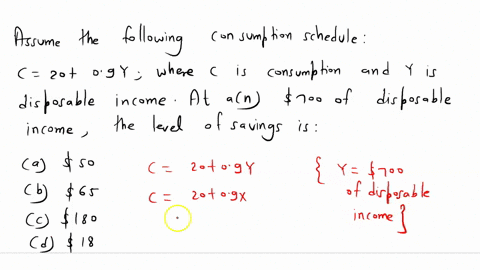 Assume the following consumption schedule:
C = 20 + 0.9Y; where C is consumption and Y is
disposable income. At a(n) $700 of disposable
income, the level of savings is:
(a) $50
(b) $65
(c) $180
(d) $18
C = 20 + 0.9Y
C = 20 + 0.9X
{ Y = $700
of disposable
income }